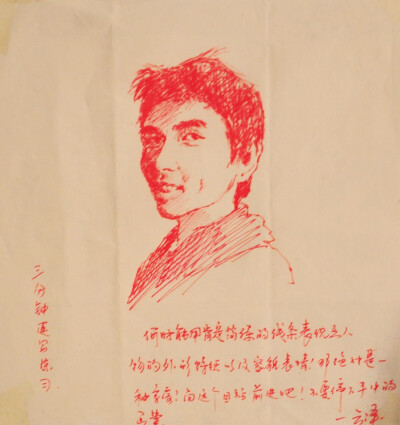 三分钟速写练习.
何时能用肯定简练的线条表现出人
物的外形特征以及容貌表情!那绝对是一
种享受!向这个目标前进吧!不要停下手中的
画笔